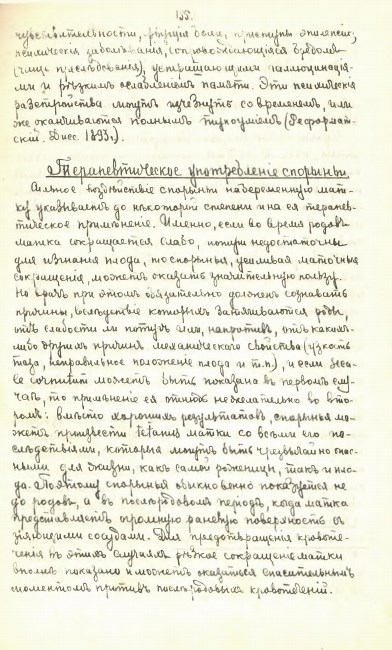 155.
чувствительности, рѣжущія боли, приступы эпилепсіи,
психическія заболѣванія, сопровождающіяся бредомъ
(чаще преслѣдованія), устрашающими галлюцинація-
ми и рѣзкимъ ослабленіемъ памяти. Эти психическія
разстройства могутъ исчезнуть со временемъ, или
же оканчиваются полнымъ тупоуміемъ (Реформат-
скій. Дисс. 1893.).
Терапевтическое употребленіе спорыньи.
Сильное воздѣйствіе спорыньи на беременную мат-
ку указываетъ до нѣкоторой степени и на ея терапев-
тическое примѣненіе. Именно, если во время родовъ
матка сокращается слабо, потуги недостаточны
для изгнанія плода, то спорынья, усиливая маточныя
сокращенія, можетъ оказать значительную пользу.
Но врачъ при этомъ обязательно долженъ сознавать
причины, вслѣдствіе которыхъ затягиваются роды,
отъ слабости ли потугъ или, напротивъ, отъ какихъ-
либо другихъ причинъ механическаго свойства (узкость
таза, неправильное положеніе плода и т.п.), и если Seca-
le cornutum можетъ быть показана въ первомъ слу-
чаѣ, то примѣненіе ея отнюдь нежелательно во вто-
ромъ: вмѣсто хорошихъ результатовъ, спорынья мо-
жетъ произвести tetanus матки со всѣми его по-
слѣдствіями, которыя могутъ быть чрезвычайно опас-
ными для жизни, какъ самой роженицы, такъ и пло-
да. Поэтому спорынья обыкновенно показуется не
до родовъ, а въ послѣродовомъ періодѣ, когда матка
представляетъ огромную раневую поверхность съ
зіяющими сосудами. Для предотвращенія кровоте-
ченія въ этихъ случаяхъ рѣзкое сокращеніе матки
вполнѣ показано и можетъ оказаться спасительнымъ
моментомъ противъ послѣродовыхъ кровотеченій.